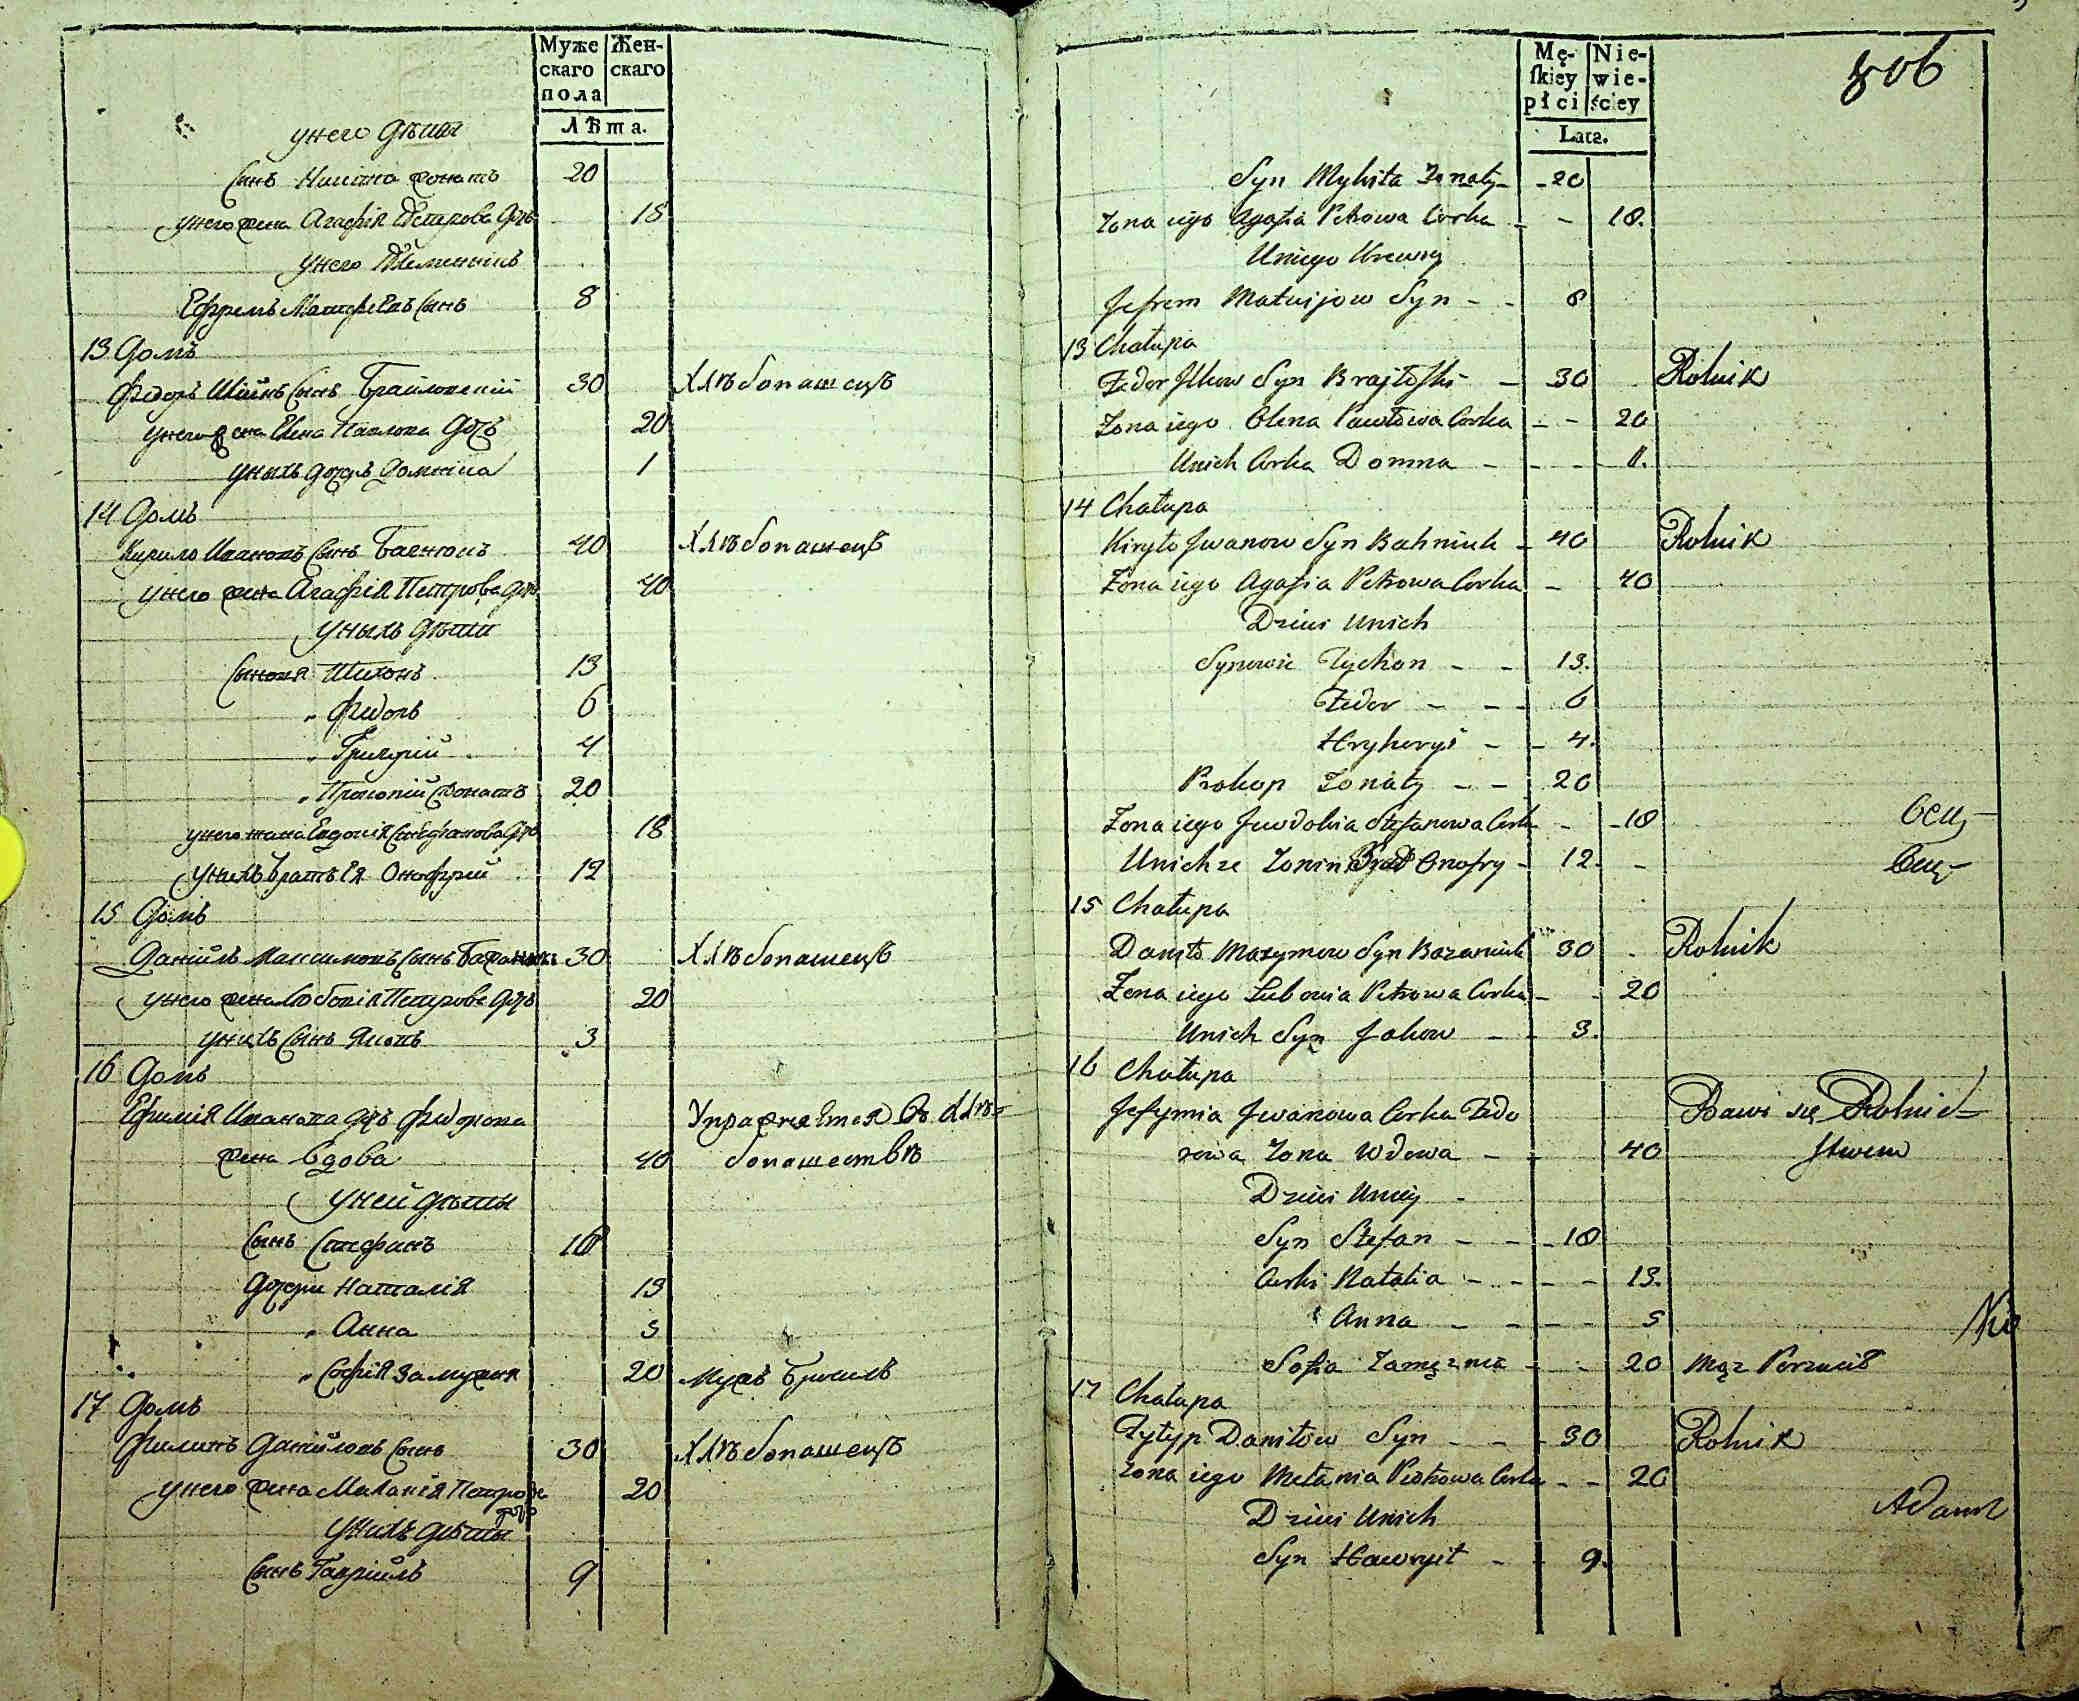 Муже
скаго
пола
Жен-
скаго
Лѣта.
унего дѣти
Сынъ Никита женатъ 20
унего жена Агафiя Петрова дочь 18
унего Племенникъ
Ефремъ Матфеевъ Сынъ 8
13 Домъ
Федоръ Сынъ Брайловскiй 30 Хлѣбопашецъ
унего жена Елена Павлова дочь 20
унихъ дочерь Домнiка 1
14 Домъ
Кирило Ивановъ Сынъ Багнюкъ 40 Хлѣбопашецъ
унего жена Агафiя Петрова дочь 40
унихъ дѣти
Сыновя Тихонъ 13
" Федоръ 6
" Григорiй 4
" Прокопiй женатъ 20
унего жена Евдокiя Стефанова дочь 18
унихъ братъ Ея Онофрiй 12
15 Домъ
Данiилъ Максимовъ Сынъ 30 Хлѣбопашецъ
унего жена Любовiя Петрова дочь 20
унихъ Сынъ Яковъ 3
16 Домъ
Ефимiя Иванова дочь Федорова Упражняется въ хлѣ-
жена вдова 40 бопашествѣ
уней дѣты
Сынъ Стефанъ 18
дочери Наталiя 13
" Анна 5
" Софiя замужня 20 Мужъ бросилъ
17 Домъ
Филипъ Данiиловъ Сынъ 30 Хлѣбопашецъ
унего жена Маланiя Петрова дочь 20
унихъ дѣты
Сынъ Гаврiилъ 9
806
Mę-
skiey
płci
Nie-
wie-
ściey
Lata.
Syn Mykita Zonaty - 20
Zona iego Agafia Petrowa Corka - - 18.
Uniego Krewny
Jefrem Matwijow Syn - - 8
13 Chałupa
Fedor Jlkow Syn Brajłoski - 30 Rolnik
Zona iego Olena Pawłowa Corka - - 20
Unich Corka Domna - - - 1.
14 Chałupa
Kiryło Jwanow Syn Bahniuk - 40 Rolnik
Zona iego Agafia Petrowa Corka - 40
Dzieci Unich
Synowie Tychon - - 13.
Fedor - - - 6
Hryhoryi - - 4.
Prokop Zonaty - - 20
Zona iego Jewdokia Stefanowa Corka - - 18
Unich ze Zonin Brat Onofry - 12. -
15 Chałupa
Daniło Maxymow Syn Bazaniuk 30 Rolnik
Zona iego Lubowia Petrowa Corka - - 20
Unich Syn Jakow - - 3.
16 Chałupa
Jefymia Jwanowa Corka Fedo Bawi się Rolnic-
rowa Zona Wdowa - - 40 stwem
Dzieci Uniey -
Syn Stefan - - - 18
Corki Natalia - - - - 13.
Anna - - - - 5
Sofia Zamęzna - - 20 Mąz Porzucił
17 Chałupa
Fylyp Daniłow Syn - - - 30 Rolnik
Zona iego Mełania Petrowa Corka - - 20
Dzieci Unich
Syn Hawryił - - 9.